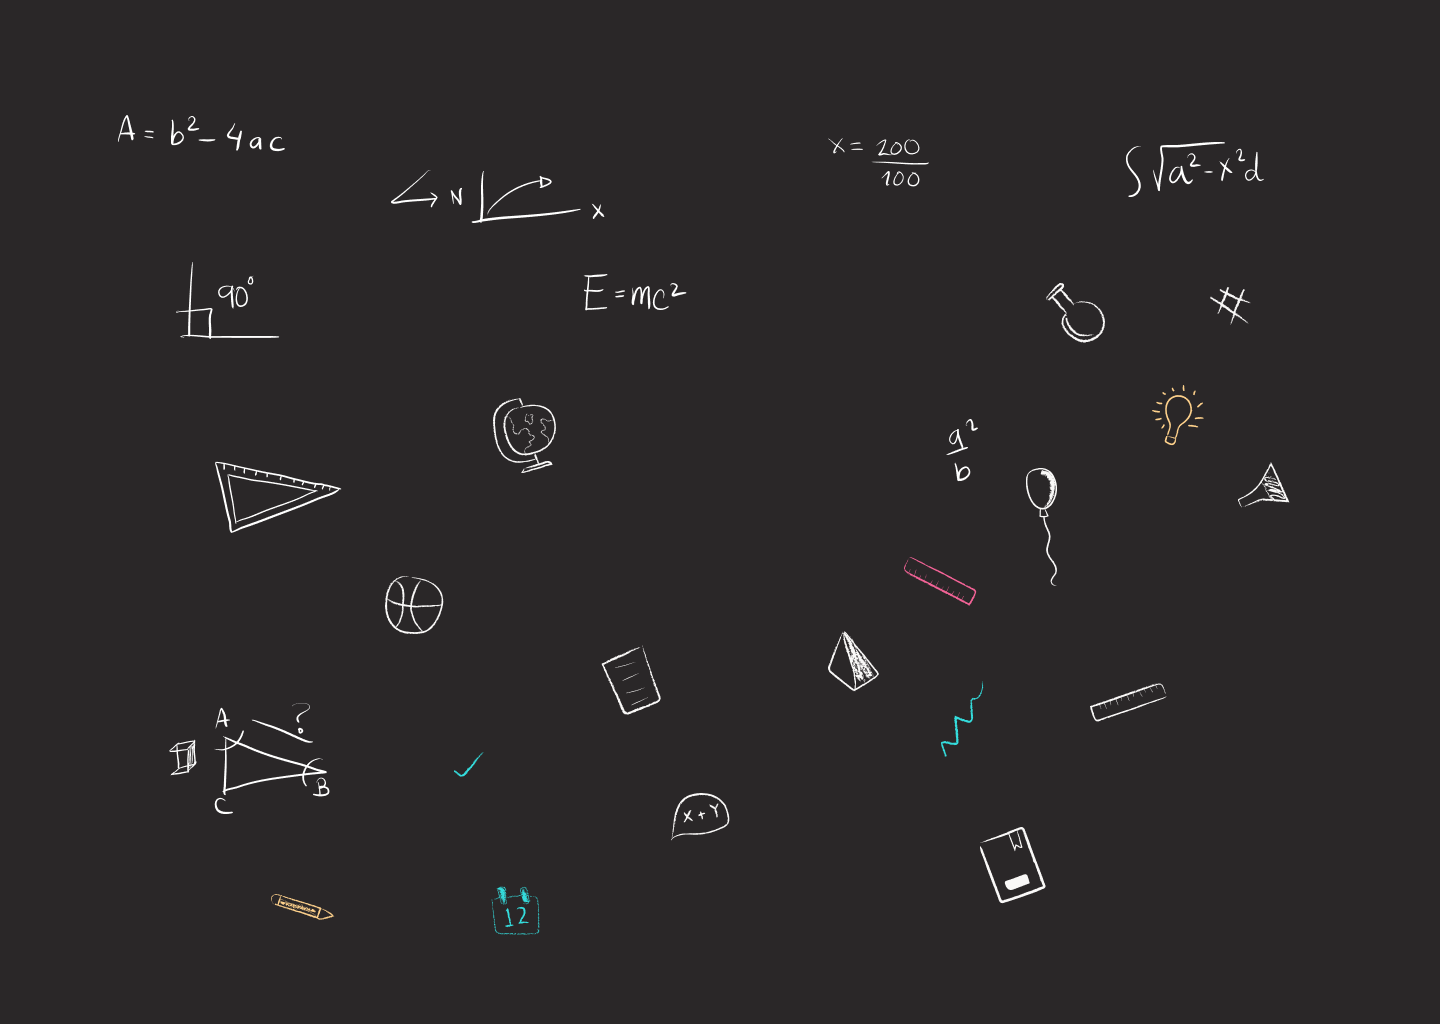 A = b² - 4ac
x = 200
100
∫√a²-x²d
N
X
90°
E = mc²
a²
b
A
?
B
C
X + Y
12